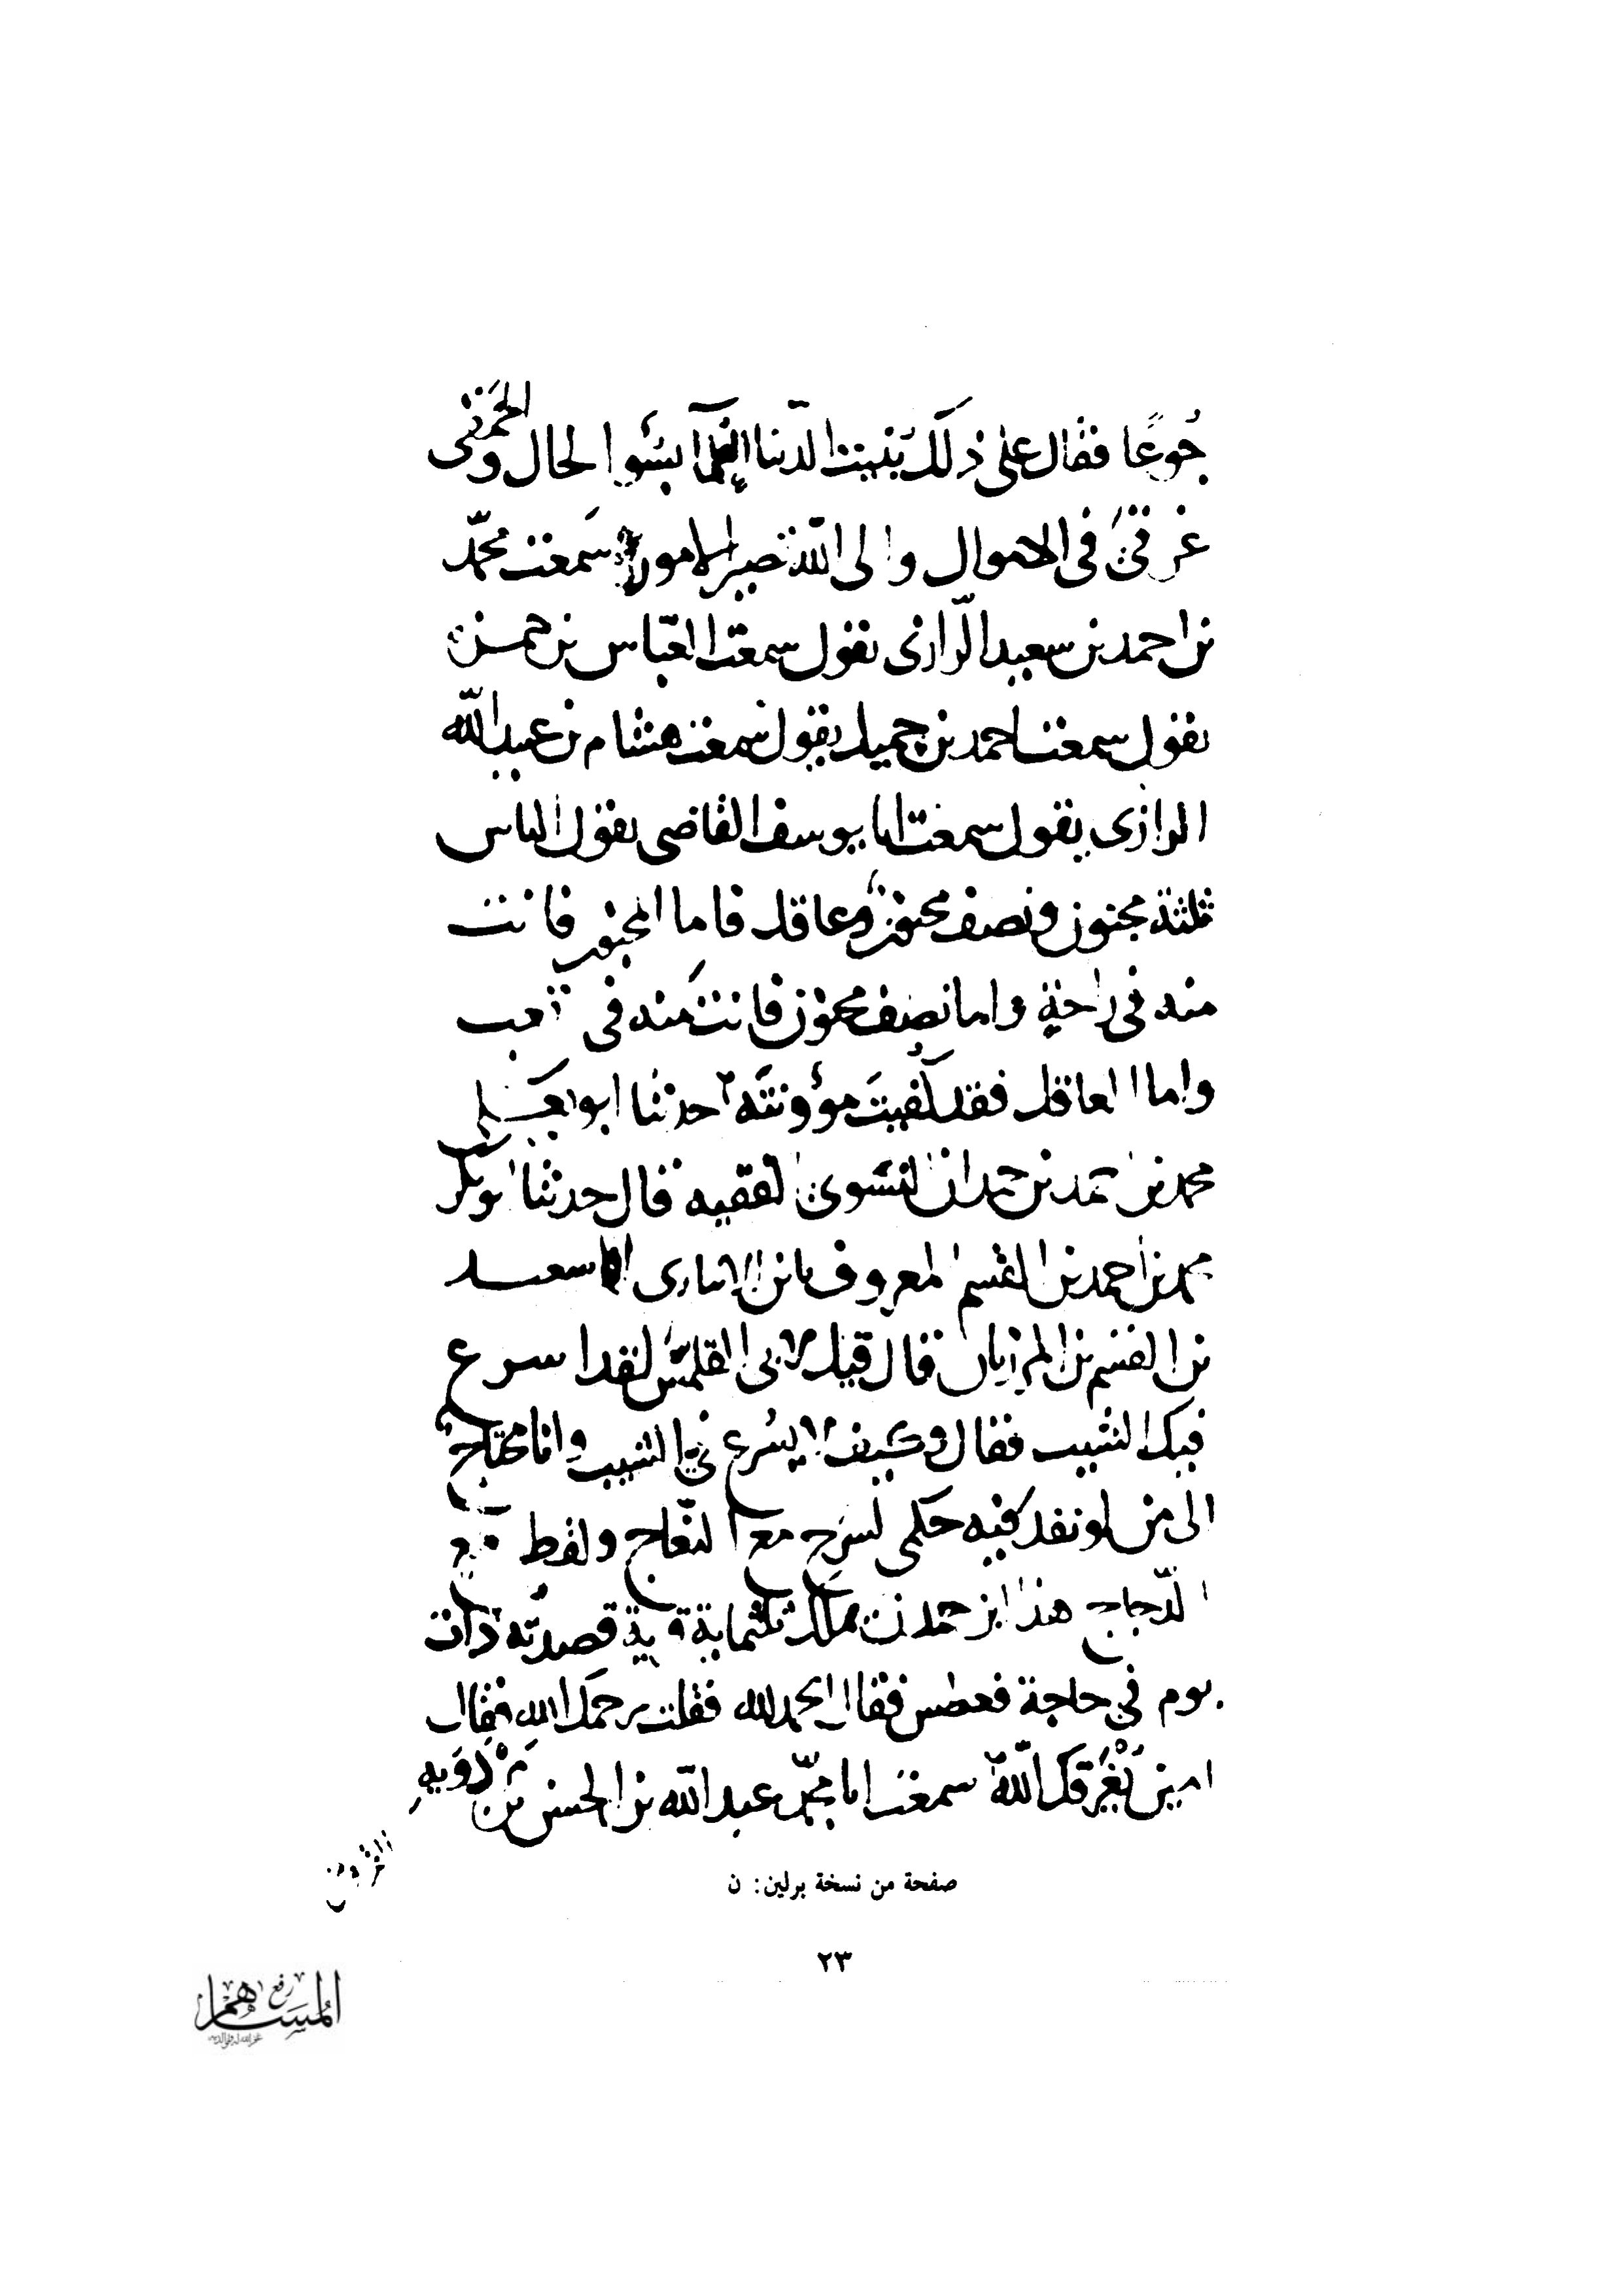 جُوعًا فقال على ذلك بُنيت الدنيا العُلمآ بسُوا الحال والحَمقى
غرقى في الاموال والى الله تصير الامور سمعت محمّد
بن احمد بن سعيد الرّازى يقول سمعت العبّاس بن حمزة
يقول سمعت احمد بن جميل يقول سمعت هشام بن عبيد الله
الرازى يقول سمعت ابا يوسف القاضى يقول الناس
ثلثة مجنون ونصف مجنون وعاقل فاما المجنون فانت
منه في راحةٍ واما نصف مجنون فانت منه في تعب
واما العاقل فقد كُفيتَ مؤونتَه حدثنا ابو
محمد بن احمد بن حمدان النَسَوى الفقيه قال حدثنا ابو بكر
محمد بن احمد بن القسم المعروف بابن الانبارى سعيد
بن القسم بن المرزبان قال قيل لابى القلمّس لقد اسرع
فيك الشيب فقال وكيف لا يسُرع فيّ الشيب وانا محتاج
الى من لو نفد فيه حكمى لسَرح مع النّعاج ولقط مع
الدّجاج هذا ابن حمدان يملك ثلثماية قرية قصدتُه ذات
يوم في حاجة فعطس فقال الحمد لله فقلت يرحمك الله فقال
امين يُغْرِقك اللهُ سمعت ابا محمّد عبد الله بن الحسن بن
صفحة من نسخة برلين: ن
٢٣
رفع
المساهم
غفر الله له ولوالديه